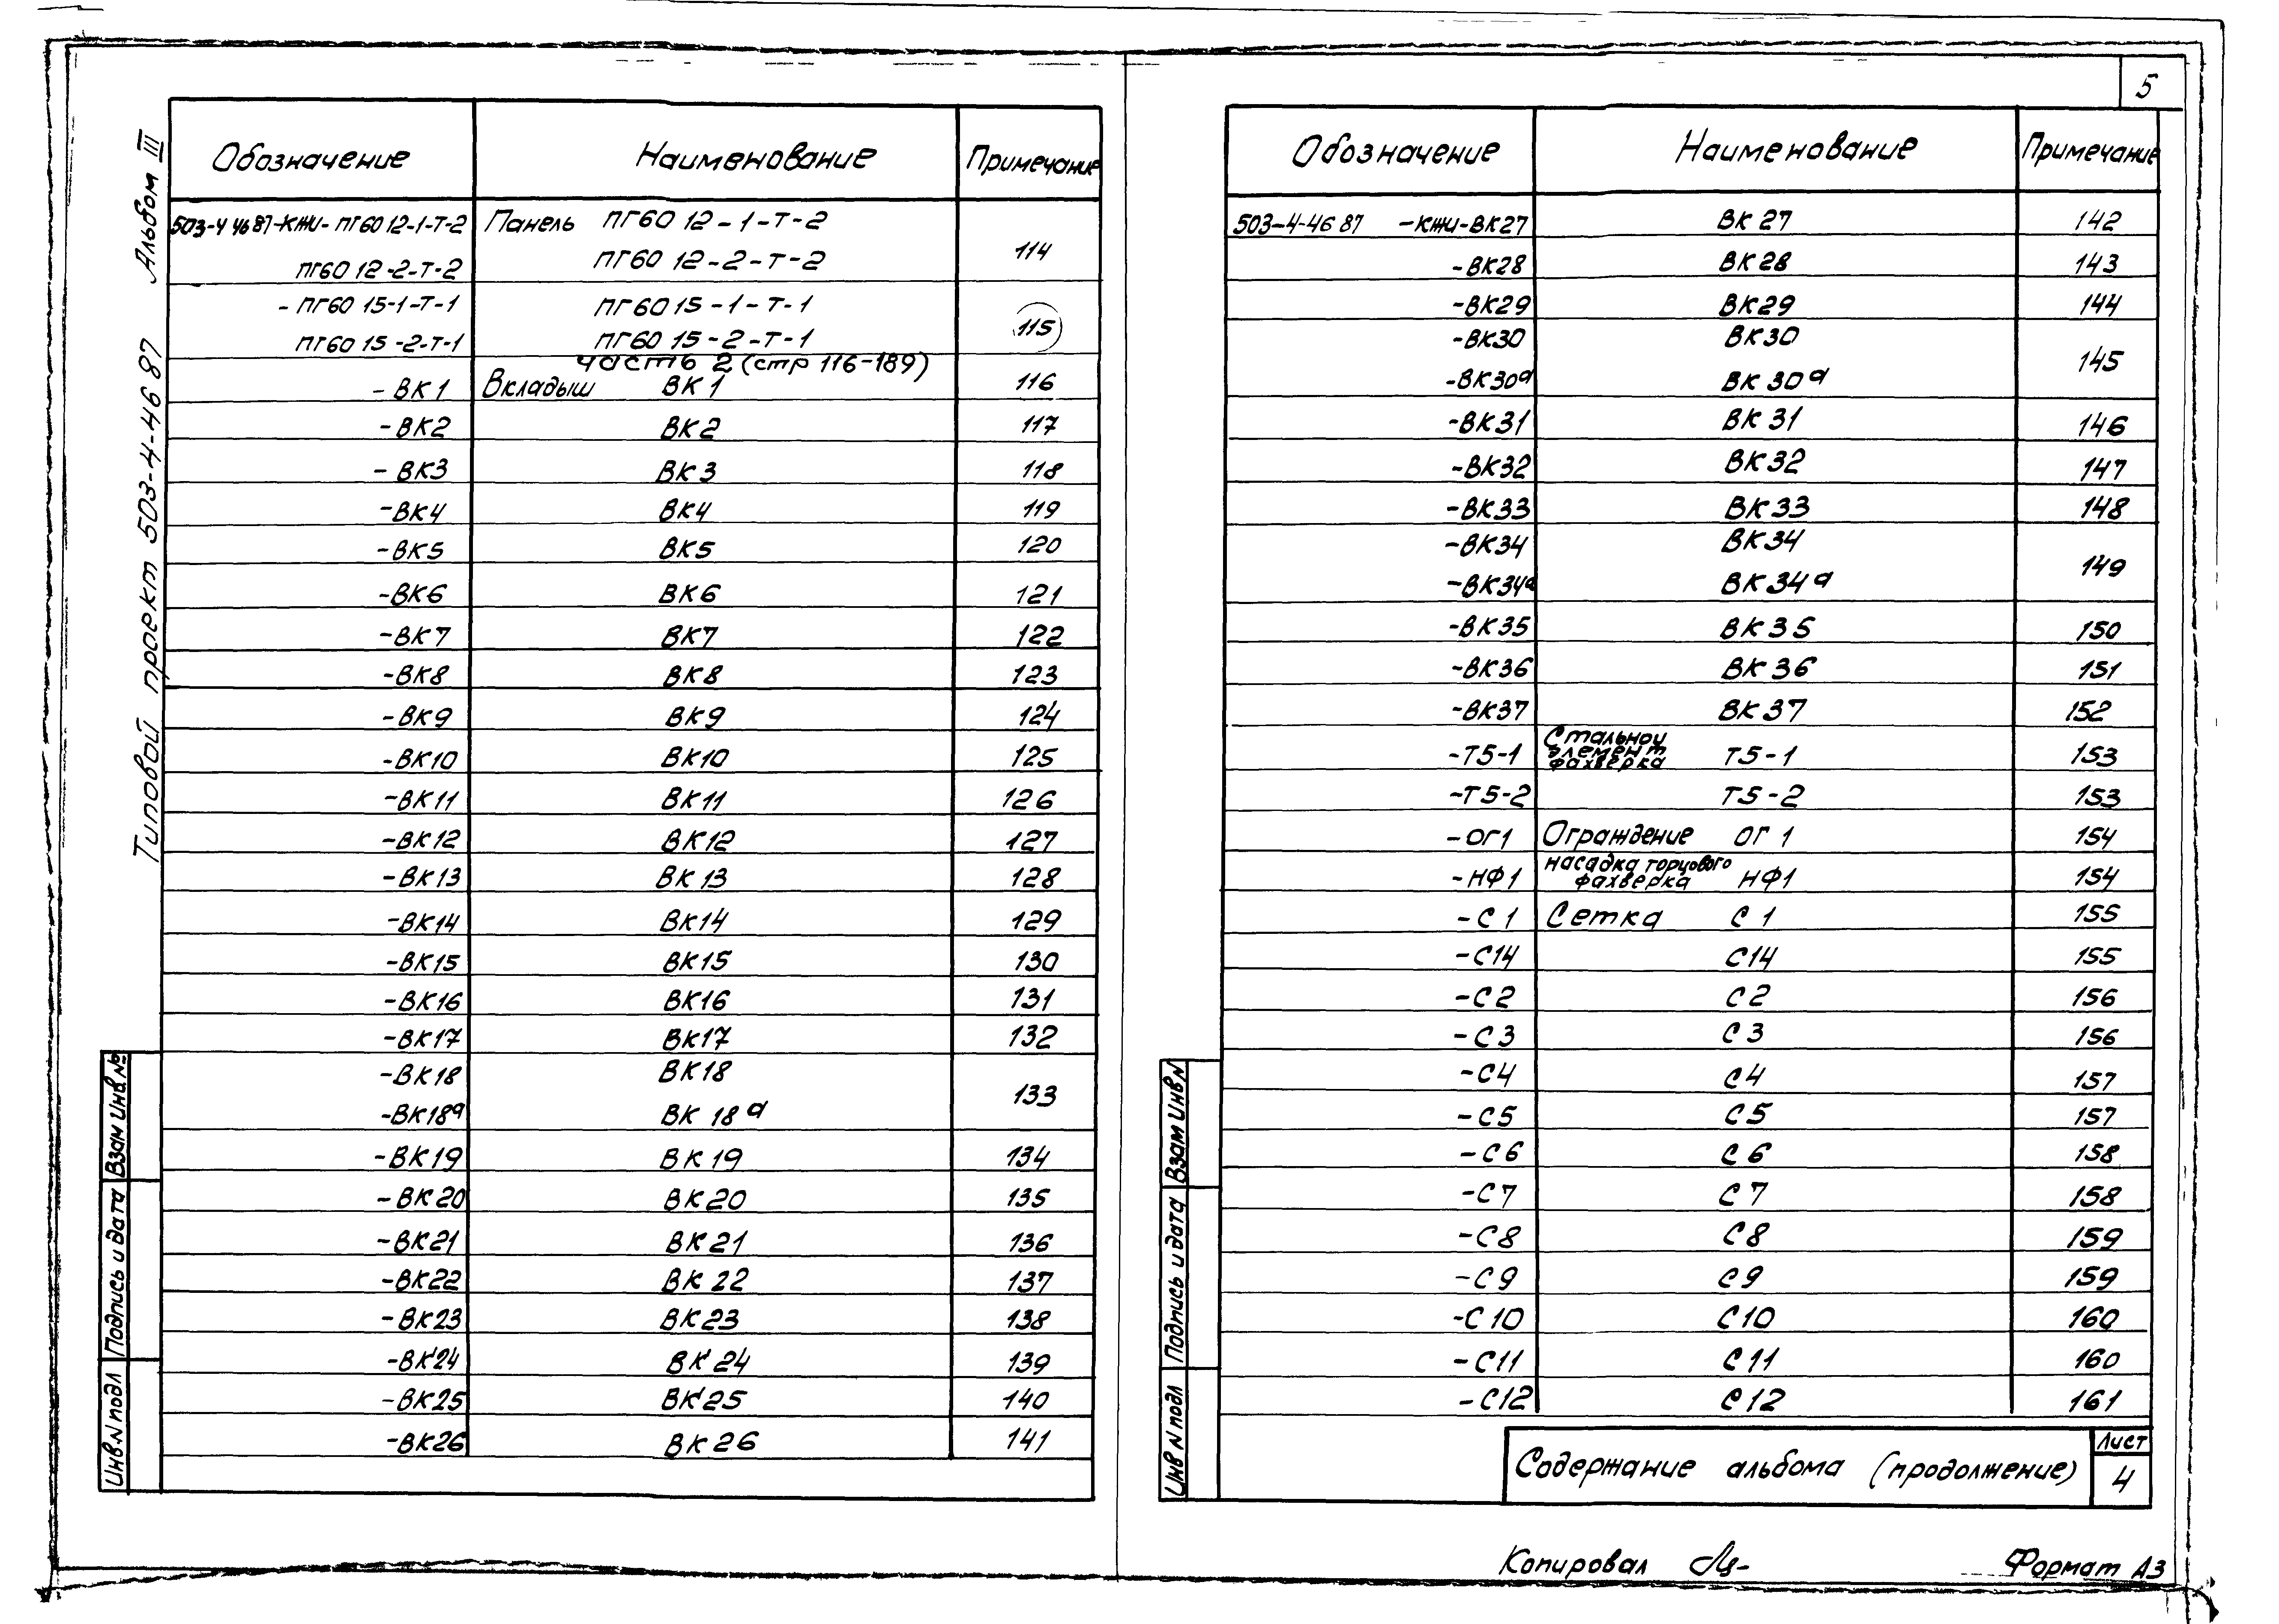 5
Типовой проект 503-4-46 87 Альбом III
Обозначение Наименование Примечание
503-4 46 87-КЖИ- ПГ60 12-1-Т-2 Панель ПГ60 12-1-Т-2
ПГ60 12-2-Т-2 ПГ60 12-2-Т-2 114
- ПГ60 15-1-Т-1 ПГ60 15-1-Т-1
ПГ60 15-2-Т-1 ПГ60 15-2-Т-1 115
часть 2 (стр 116-189)
- ВК1 Вкладыш ВК1 116
-ВК2 ВК2 117
- ВК3 ВК3 118
-ВК4 ВК4 119
-ВК5 ВК5 120
-ВК6 ВК6 121
-ВК7 ВК7 122
-ВК8 ВК8 123
-ВК9 ВК9 124
-ВК10 ВК10 125
-ВК11 ВК11 126
-ВК12 ВК12 127
-ВК13 ВК13 128
-ВК14 ВК14 129
-ВК15 ВК15 130
-ВК16 ВК16 131
-ВК17 ВК17 132
-ВК18 ВК18
-ВК18а ВК 18а 133
-ВК19 ВК19 134
-ВК20 ВК20 135
-ВК21 ВК21 136
-ВК22 ВК22 137
-ВК23 ВК23 138
-ВК24 ВК24 139
-ВК25 ВК25 140
-ВК26 ВК26 141
Взам Инв №
Подпись и дата
Инв.N подл
Обозначение Наименование Примечание
503-4-46 87 -КЖИ-ВК27 ВК27 142
-ВК28 ВК28 143
-ВК29 ВК29 144
-ВК30 ВК30
-ВК30а ВК30а 145
-ВК31 ВК31 146
-ВК32 ВК32 147
-ВК33 ВК33 148
-ВК34 ВК34
-ВК34а ВК34а 149
-ВК35 ВК35 150
-ВК36 ВК36 151
-ВК37 ВК37 152
Стальной
элемент
-Т5-1 фахверка Т5-1 153
-Т5-2 Т5-2 153
-ОГ1 Ограждение ОГ 1 154
насадка торцового
-НФ1 фахверка НФ1 154
-С 1 Сетка С 1 155
-С14 С14 155
-С2 С2 156
-С3 С3 156
-С4 С4 157
-С5 С5 157
-С6 С6 158
-С7 С7 158
-С8 С8 159
-С9 С9 159
-С10 С10 160
-С11 С11 160
-С12 С12 161
Взам Инв N
Подпись и дата
Инв N подл
Содержание альбома (продолжение)
Лист
4
Копировал
Формат А3